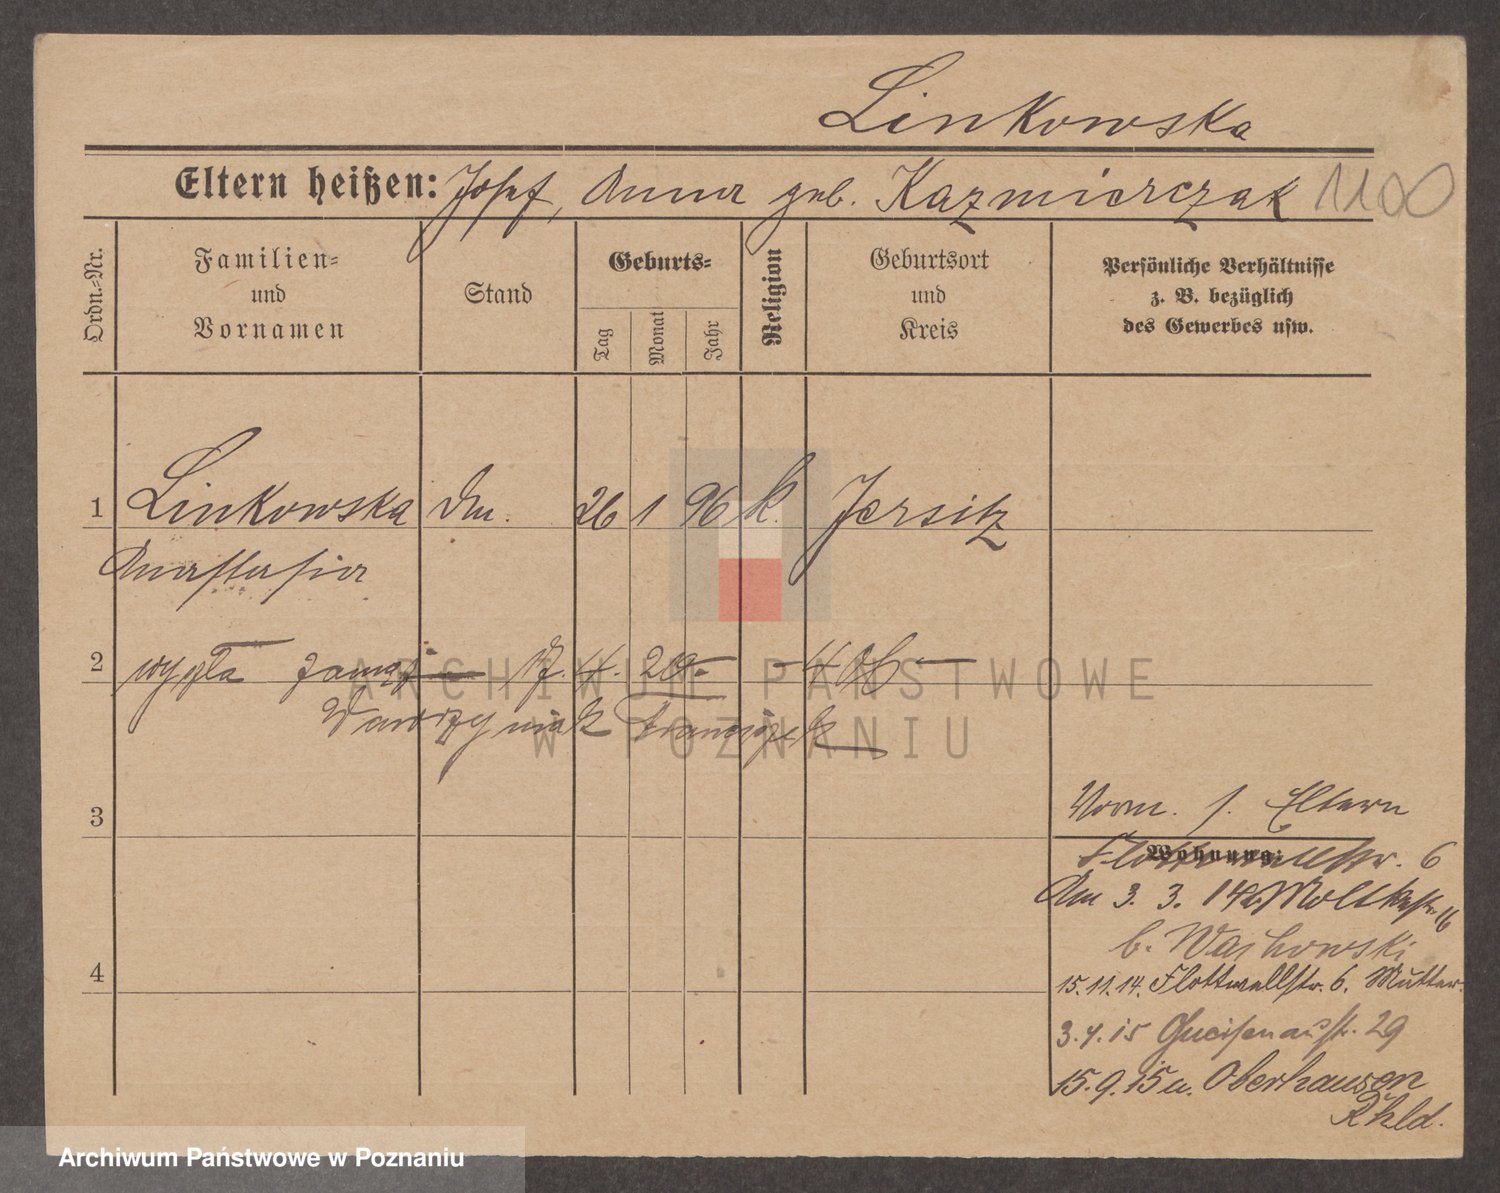 Linkowska
Eltern heißen: Josef, Anna geb. Kazmierczak 1100
Ordn.-Nr.
Familien-
und
Vornamen
Stand
Geburts-
Tag
Monat
Jahr
Religion
Geburtsort
und
Kreis
Persönliche Verhältnisse
z. B. bezüglich
des Gewerbes usw.
1 Linkowska 26 1 96 k. Jersitz
Anastasia
2 wyszła zamąż 4. 20.
Wawrzyniak Franciszek
3
Vorm. s. Eltern
Wohnung:
Flottwellstr. 6
Am 3. 3. 14 Moltkestr. 16
b.
15.11.14. Flottwellstr. 6. Mutter.
3.4.15 Gneisenaustr. 29
4
15.9.15 n. Oberhausen
Rhld.
ARCHIWUM PAŃSTWOWE
W POZNANIU
Archiwum Państwowe w Poznaniu